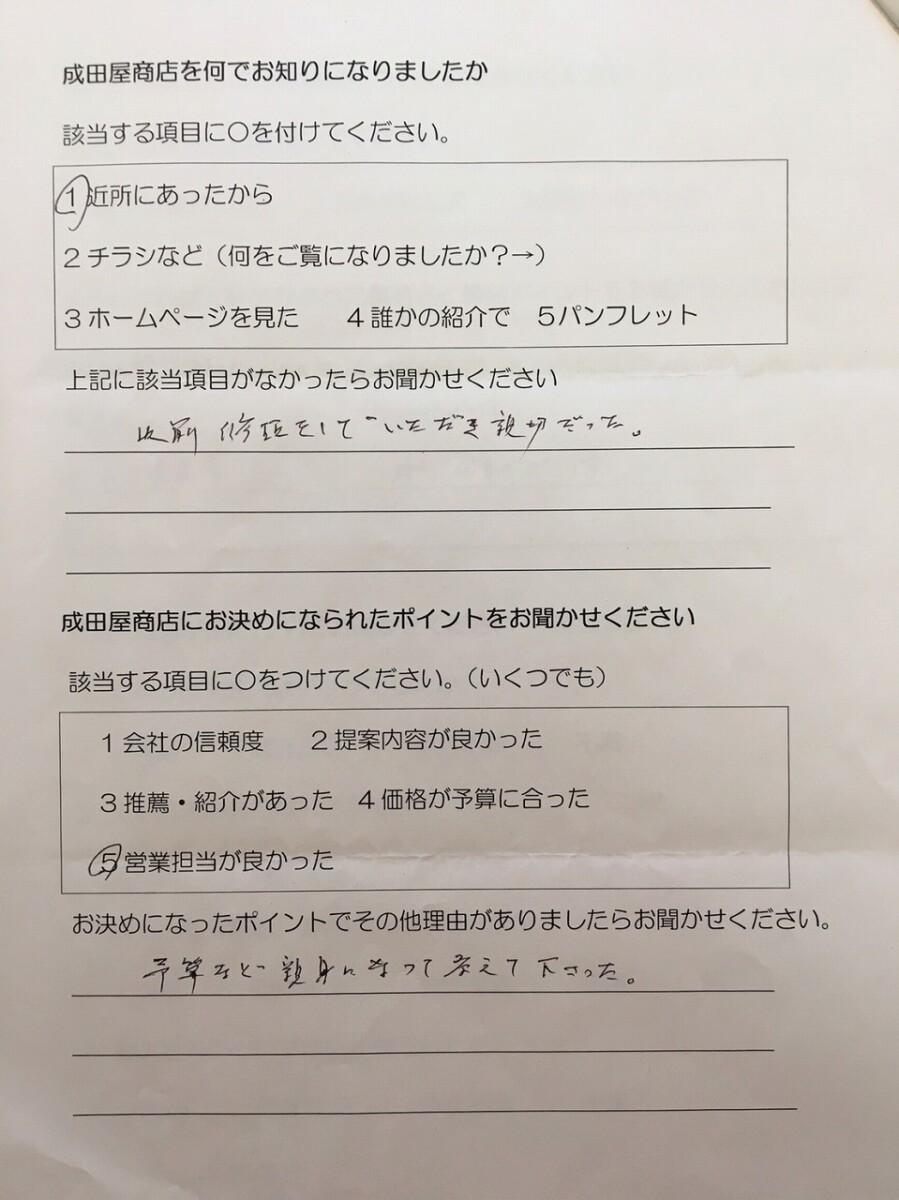 成田屋商店を何でお知りになりましたか
該当する項目に〇を付けてください。
1 近所にあったから
2 チラシなど（何をご覧になりましたか？→）
3 ホームページを見た 4 誰かの紹介で 5 パンフレット
上記に該当項目がなかったらお聞かせください
以前 修理をしていただき親切だった。
成田屋商店にお決めになられたポイントをお聞かせください
該当する項目に〇をつけてください。（いくつでも）
1 会社の信頼度 2 提案内容が良かった
3 推薦・紹介があった 4 価格が予算に合った
5 営業担当が良かった
お決めになったポイントでその他理由がありましたらお聞かせください。
予算など親身になって考えて下さった。